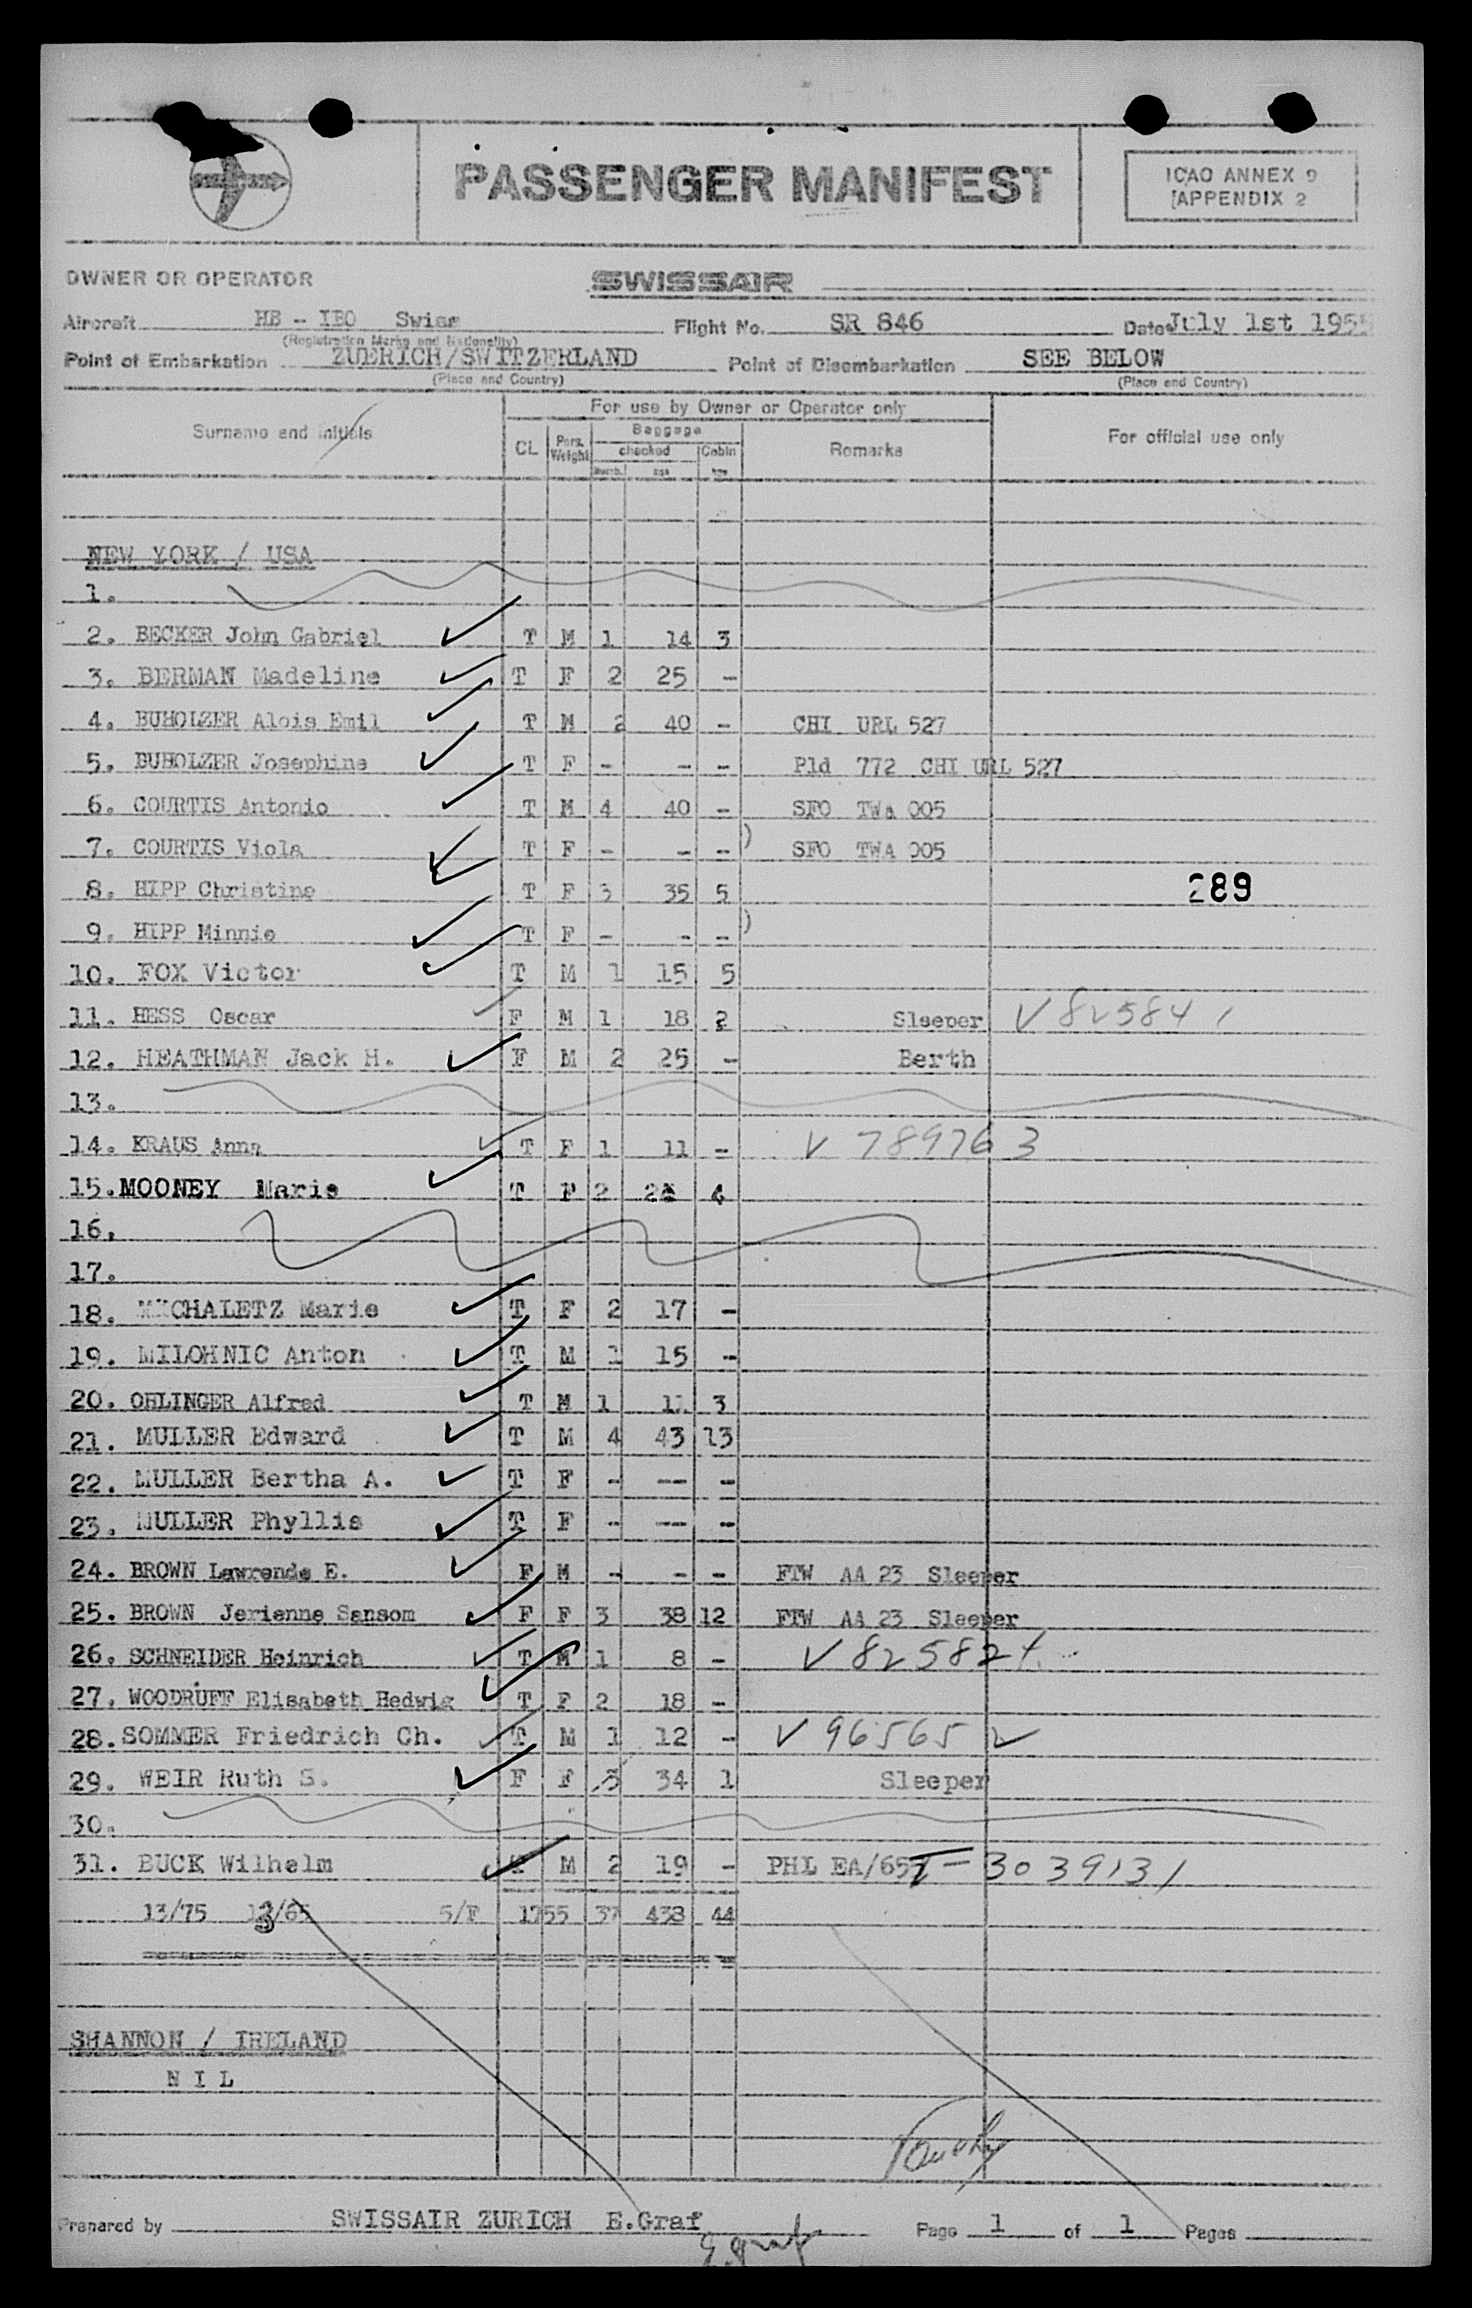 PASSENGER MANIFEST
ICAO ANNEX 9
APPENDIX 2
OWNER OR OPERATOR SWISSAIR
Aircraft HB - IBO Swiss Flight No. SR 846 Date July 1st 1955
(Registration Marks and Nationality)
Point of Embarkation ZUERICH/SWITZERLAND Point of Disembarkation SEE BELOW
(Place and Country) (Place and Country)
For use by Owner or Operator only
Surname and initials CL Pers. Weight Baggage checked Cabin Remarks For official use only
NEW YORK / USA
1.
2. BECKER John Gabriel T M 1 14 3
3. BERMAN Madeline T F 2 25 -
4. BUHOLZER Alois Emil T M 2 40 - CHI URL 527
5. BUHOLZER Josephine T F - - - Pld 772 CHI URL 527
6. COURTIS Antonio T M 4 40 - SFO TWA 005
7. COURTIS Viola T F - - - ) SFO TWA 005
8. HIPP Christine T F 3 35 5 289
9. HIPP Minnie T F - - - )
10. FOX Victor T M 1 15 5
11. HESS Oscar F M 1 18 2 Sleeper V 825841
12. HEATHMAN Jack H. F M 2 25 - Berth
13.
14. KRAUS Anna T F 1 11 - V 789763
15. MOONEY Marie T F 2 4
16.
17.
18. MICHALETZ Marie T F 2 17 -
19. MILOHNIC Anton T M 1 15 -
20. OHLINGER Alfred T M 1 11 3
21. MULLER Edward T M 4 43 13
22. MULLER Bertha A. T F - -- -
23. MULLER Phyllis T F - -- -
24. BROWN Lawrende E. F M - - - FTW AA 23 Sleeper
25. BROWN Jerienne Sansom F F 3 38 12 FTW AA 23 Sleeper
26. SCHNEIDER Heinrich T M 1 8 - V 825824
27. WOODRUFF Elisabeth Hedwig T F 2 18 -
28. SOMMER Friedrich Ch. T M 1 12 - V 965652
29. WEIR Ruth S. F F 3 34 1 Sleeper
30.
31. BUCK Wilhelm T M 2 19 - PHL EA/657 T-3039131
13/75 13/65 5/F 1755 37 438 44
SHANNON / IRELAND
N I L
Prepared by SWISSAIR ZURICH E.Graf Page 1 of 1 Pages
E. Graf